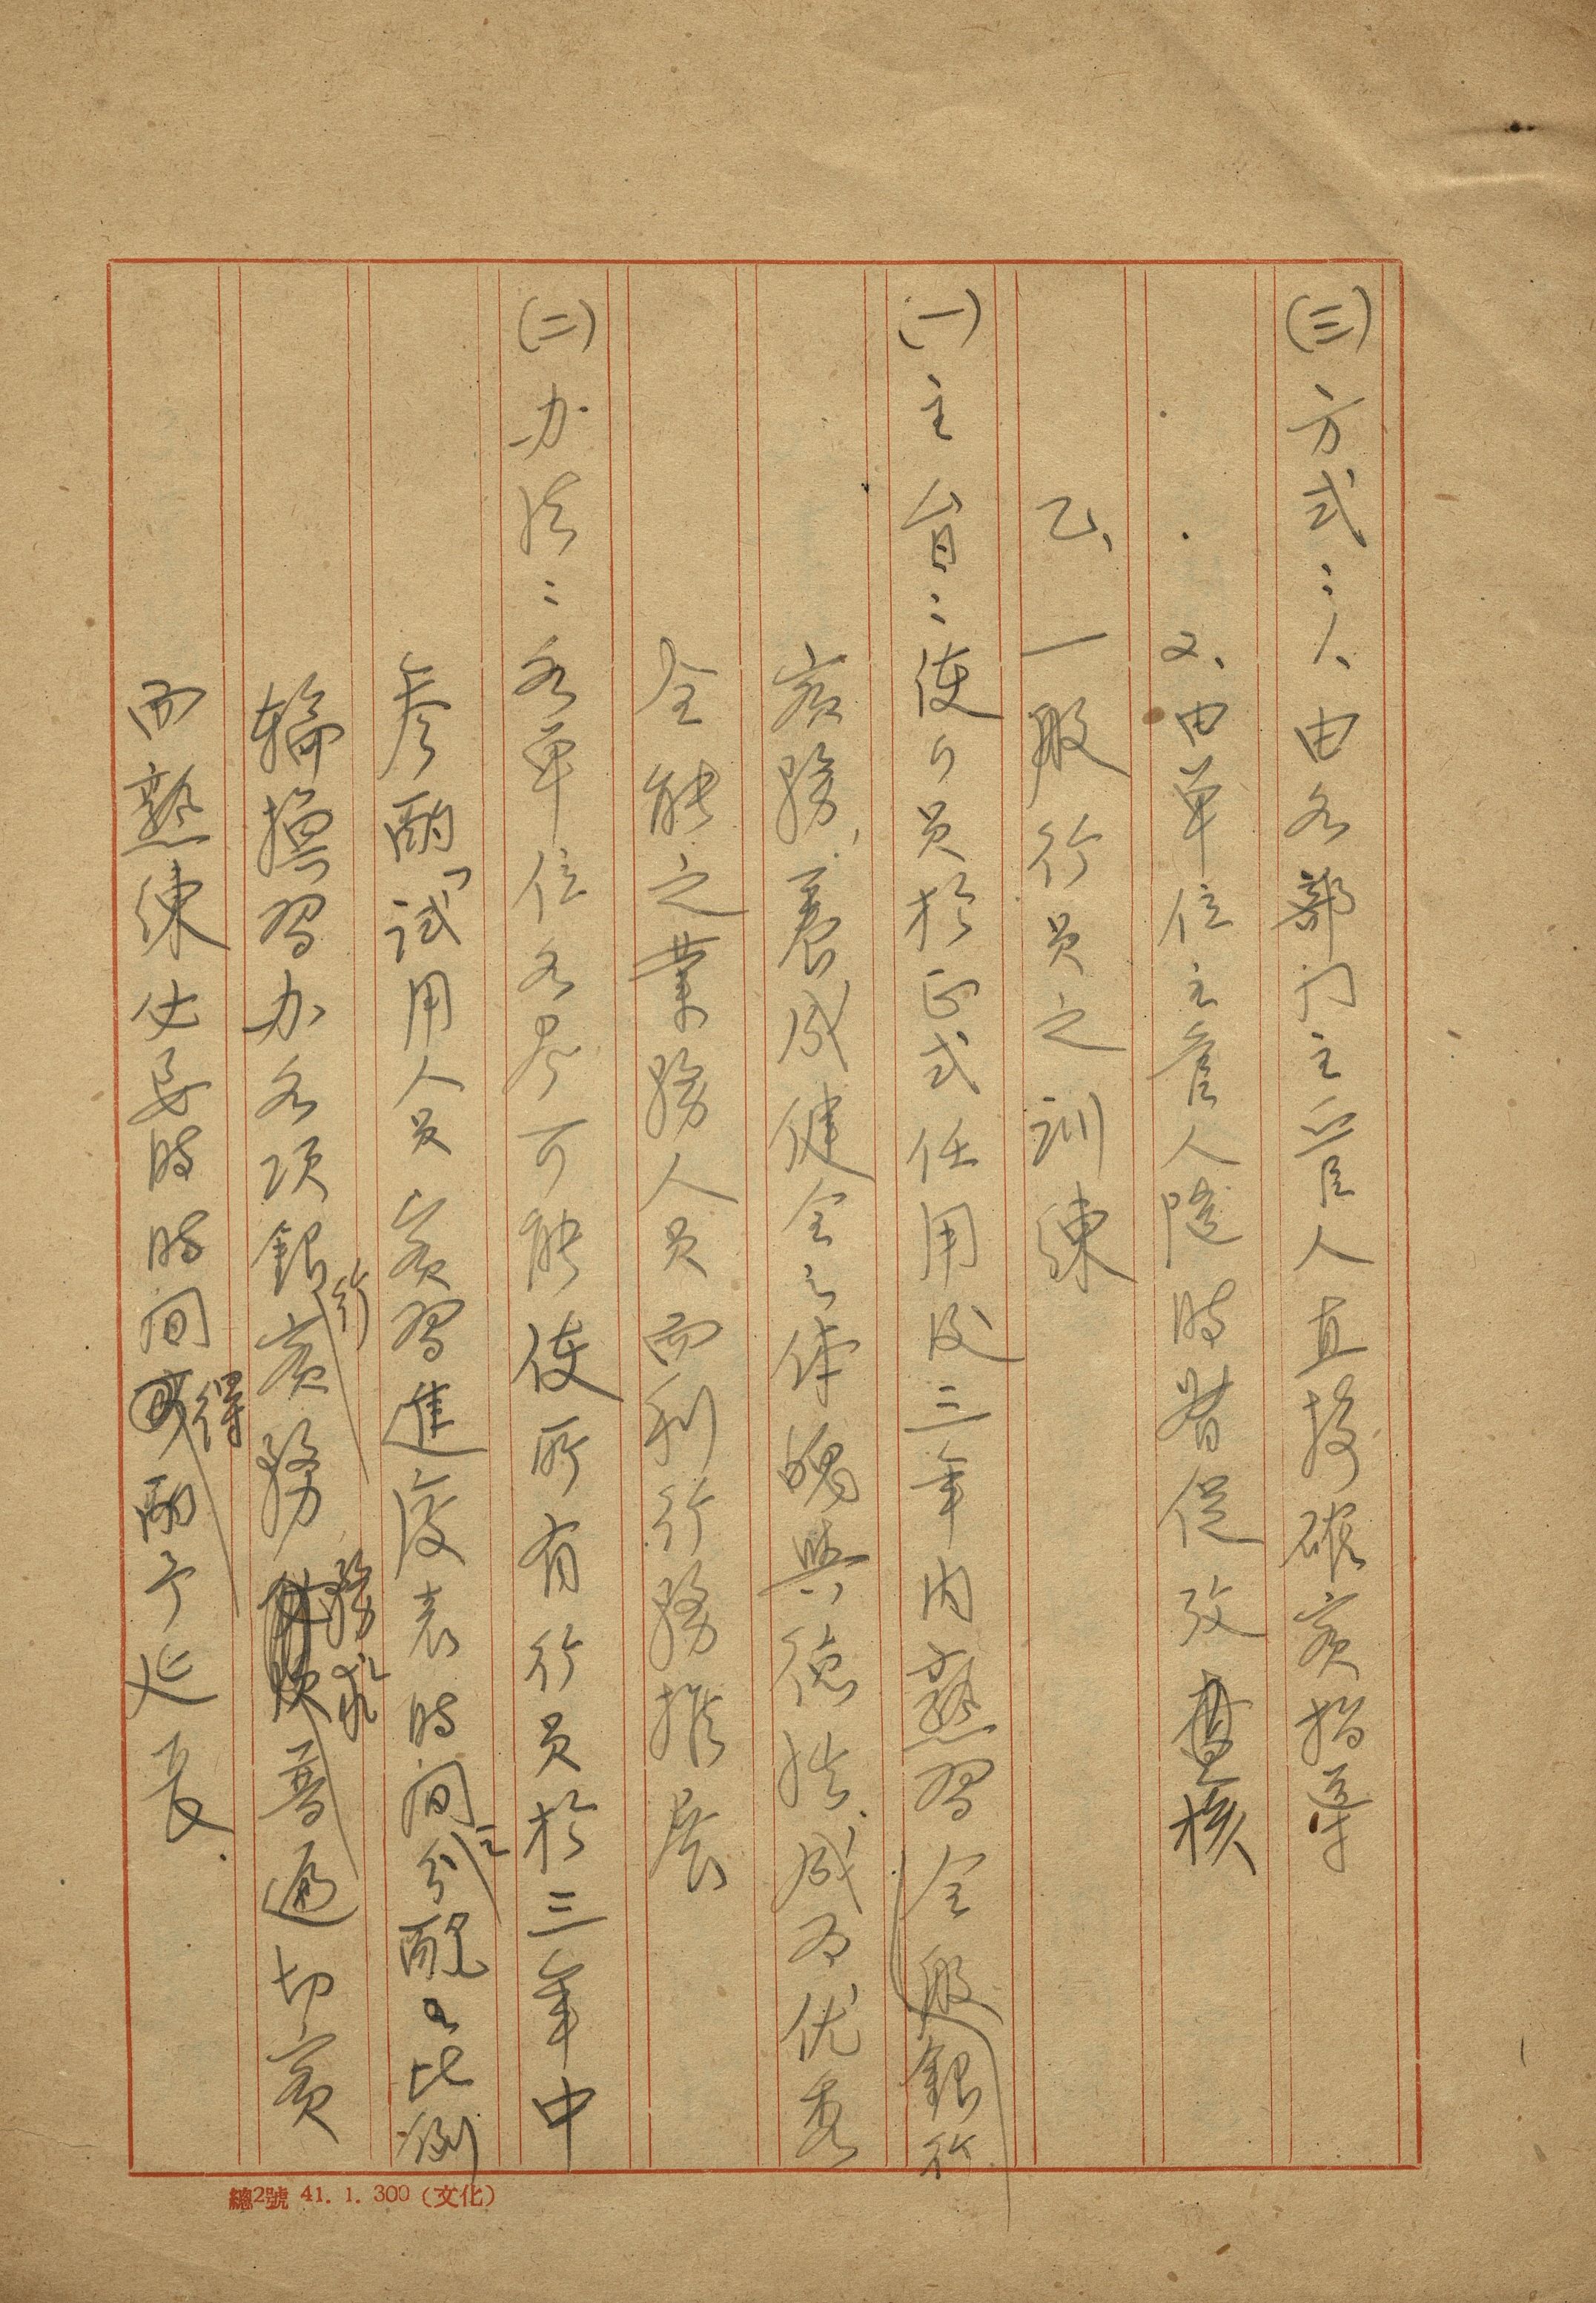 (三)方式：1、由各部门主管人直接確實指導
2、由单位主管人隨時督促攷查核
乙、一般行员之訓練
(一)主旨：使行员於正式任用后三年内熟習全般銀行
實務，養成健全之体魄與德性，成为优秀
全能之業務人员而利行務推展
(二)办法：各单位各尽可能使所有行员於三年中
參酌「試用人员實習進度表時间之分配之比例
輪換習办各項銀行實務務求普遍切實
而熟練 必要時時间得酌予延長.
總2號 41. 1. 300 (文化)